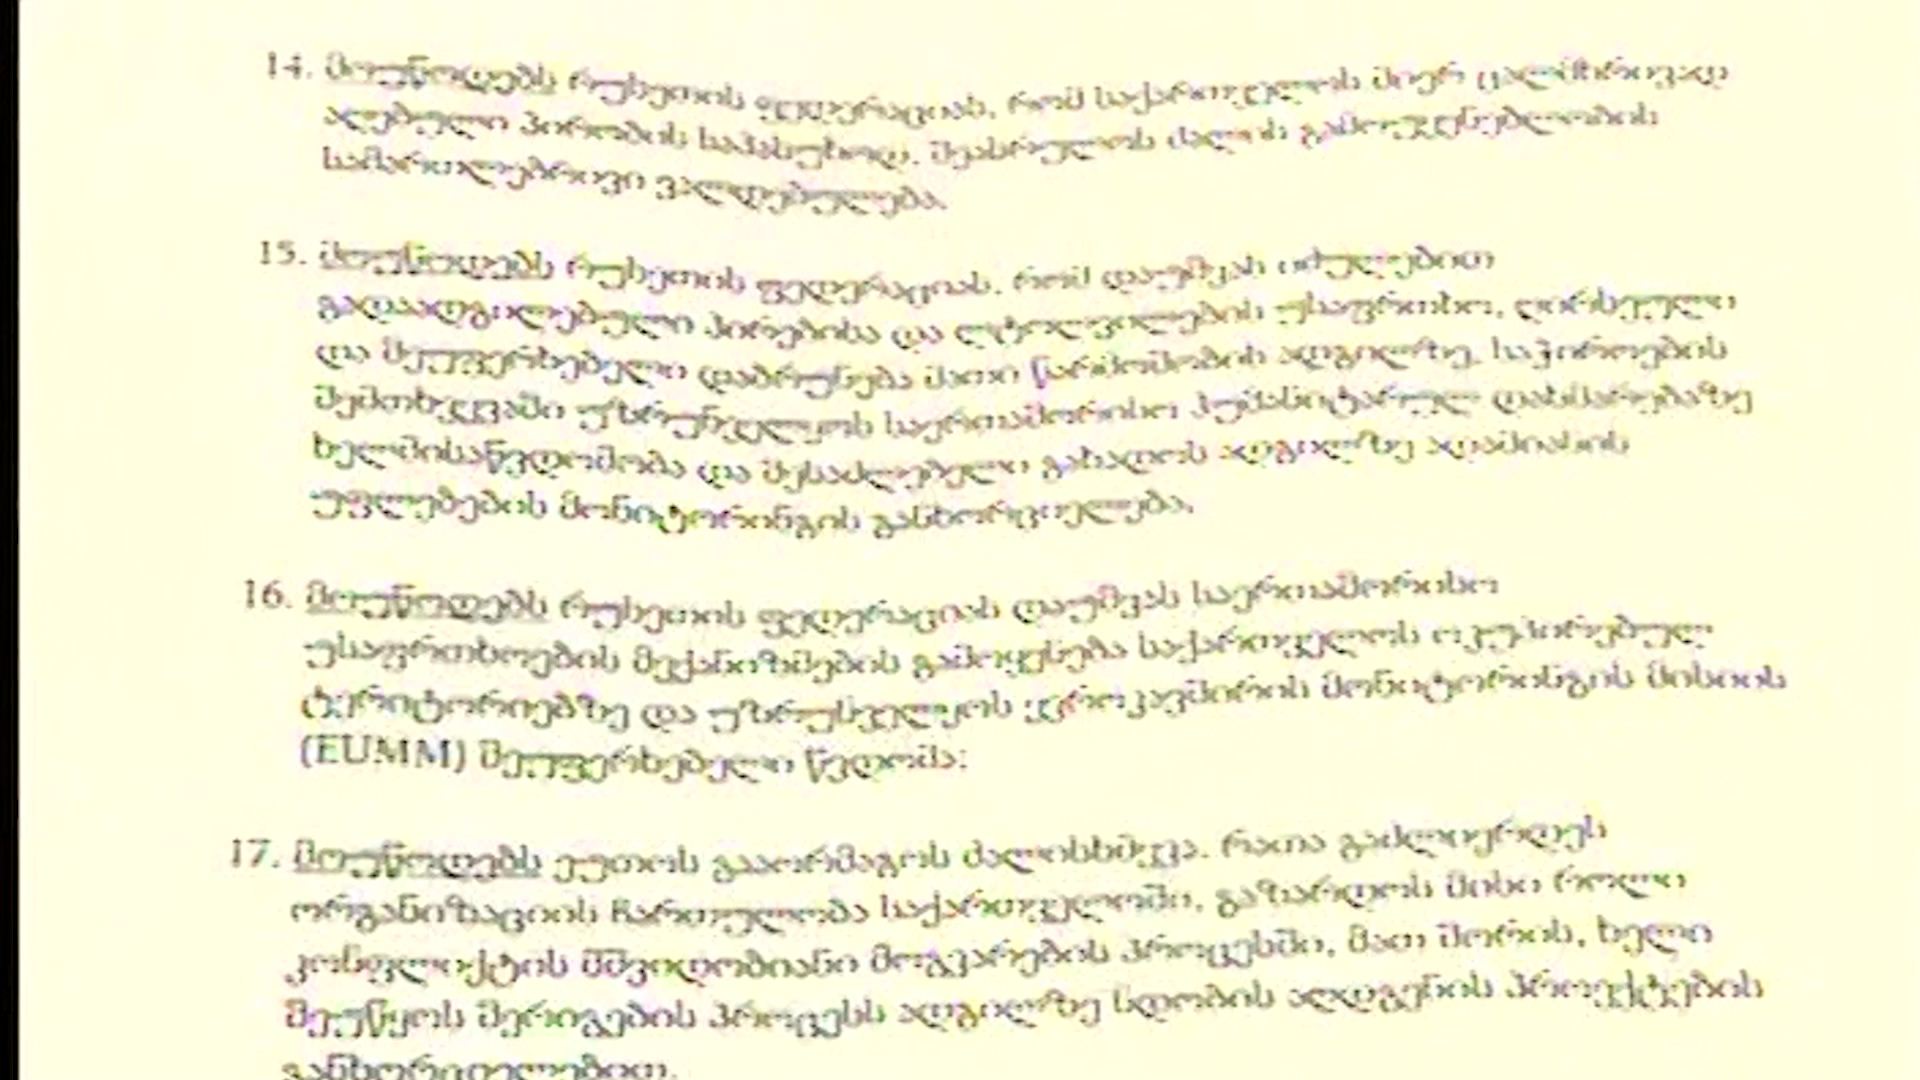 14. მოუწოდებს რუსეთის ფედერაციას, რომ საქართველოს მიერ ცალმხრივად
აღებული პირობის საპასუხოდ, შეასრულოს ძალის გამოუყენებლობის
სამართლებრივი ვალდებულება.
15. მოუწოდებს რუსეთის ფედერაციას, რომ დაუშვას იძულებით
გადაადგილებული პირებისა და ლტოლვილების უსაფრთხო, ღირსეული
და შეუფერხებელი დაბრუნება მათი წარმოშობის ადგილზე, საჭიროების
შემთხვევაში უზრუნველყოს საერთაშორისო ჰუმანიტარულ დახმარებაზე
ხელმისაწვდომობა და შესაძლებელი გახადოს ადგილზე ადამიანის
უფლებების მონიტორინგის განხორციელება.
16. მოუწოდებს რუსეთის ფედერაციას დაუშვას საერთაშორისო
უსაფრთხოების მექანიზმების გამოყენება საქართველოს ოკუპირებულ
ტერიტორიებზე და უზრუნველყოს ევროკავშირის მონიტორინგის მისიის
(EUMM) შეუფერხებელი წვდომა;
17. მოუწოდებს ეუთოს გააორმაგოს ძალისხმევა, რათა გაძლიერდეს
ორგანიზაციის ჩართულობა საქართველოში, გაზარდოს მისი როლი
კონფლიქტის მშვიდობიანი მოგვარების პროცესში, მათ შორის, ხელი
შეუწყოს შერიგების პროცესს ადგილზე ნდობის აღდგენის პროექტების
განხორციელებით.